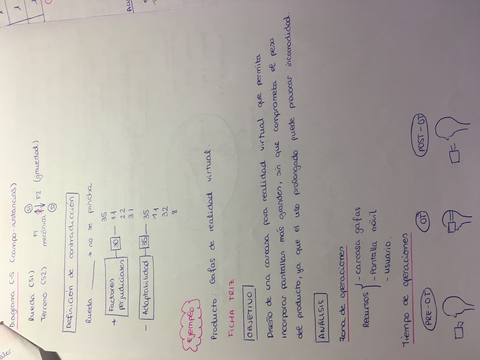 Diagrama C-S (campo-sustancias)
Rueda (S1) F1 F2
Terreno (S2) mecánica (gravedad)
Definición de contradicción
Rueda → no se pincha
+ Factores perjudicados
31
35
11
22
31
- Adaptabilidad 35
35
11
32
8
Ejemplo
Producto: Gafas de realidad virtual
FICHA TRIZ
OBJETIVO
Diseño de una carcasa para realidad virtual que permita
incorporar pantallas más grandes, sin que comprometa el peso
del producto, ya que el uso prolongado puede provocar incomodidad.
ANÁLISIS
Zona de operaciones
Recursos - carcasa gafas
- Pantalla móvil
- Usuario
Tiempo de operaciones
PRE-OT OT POST-OT